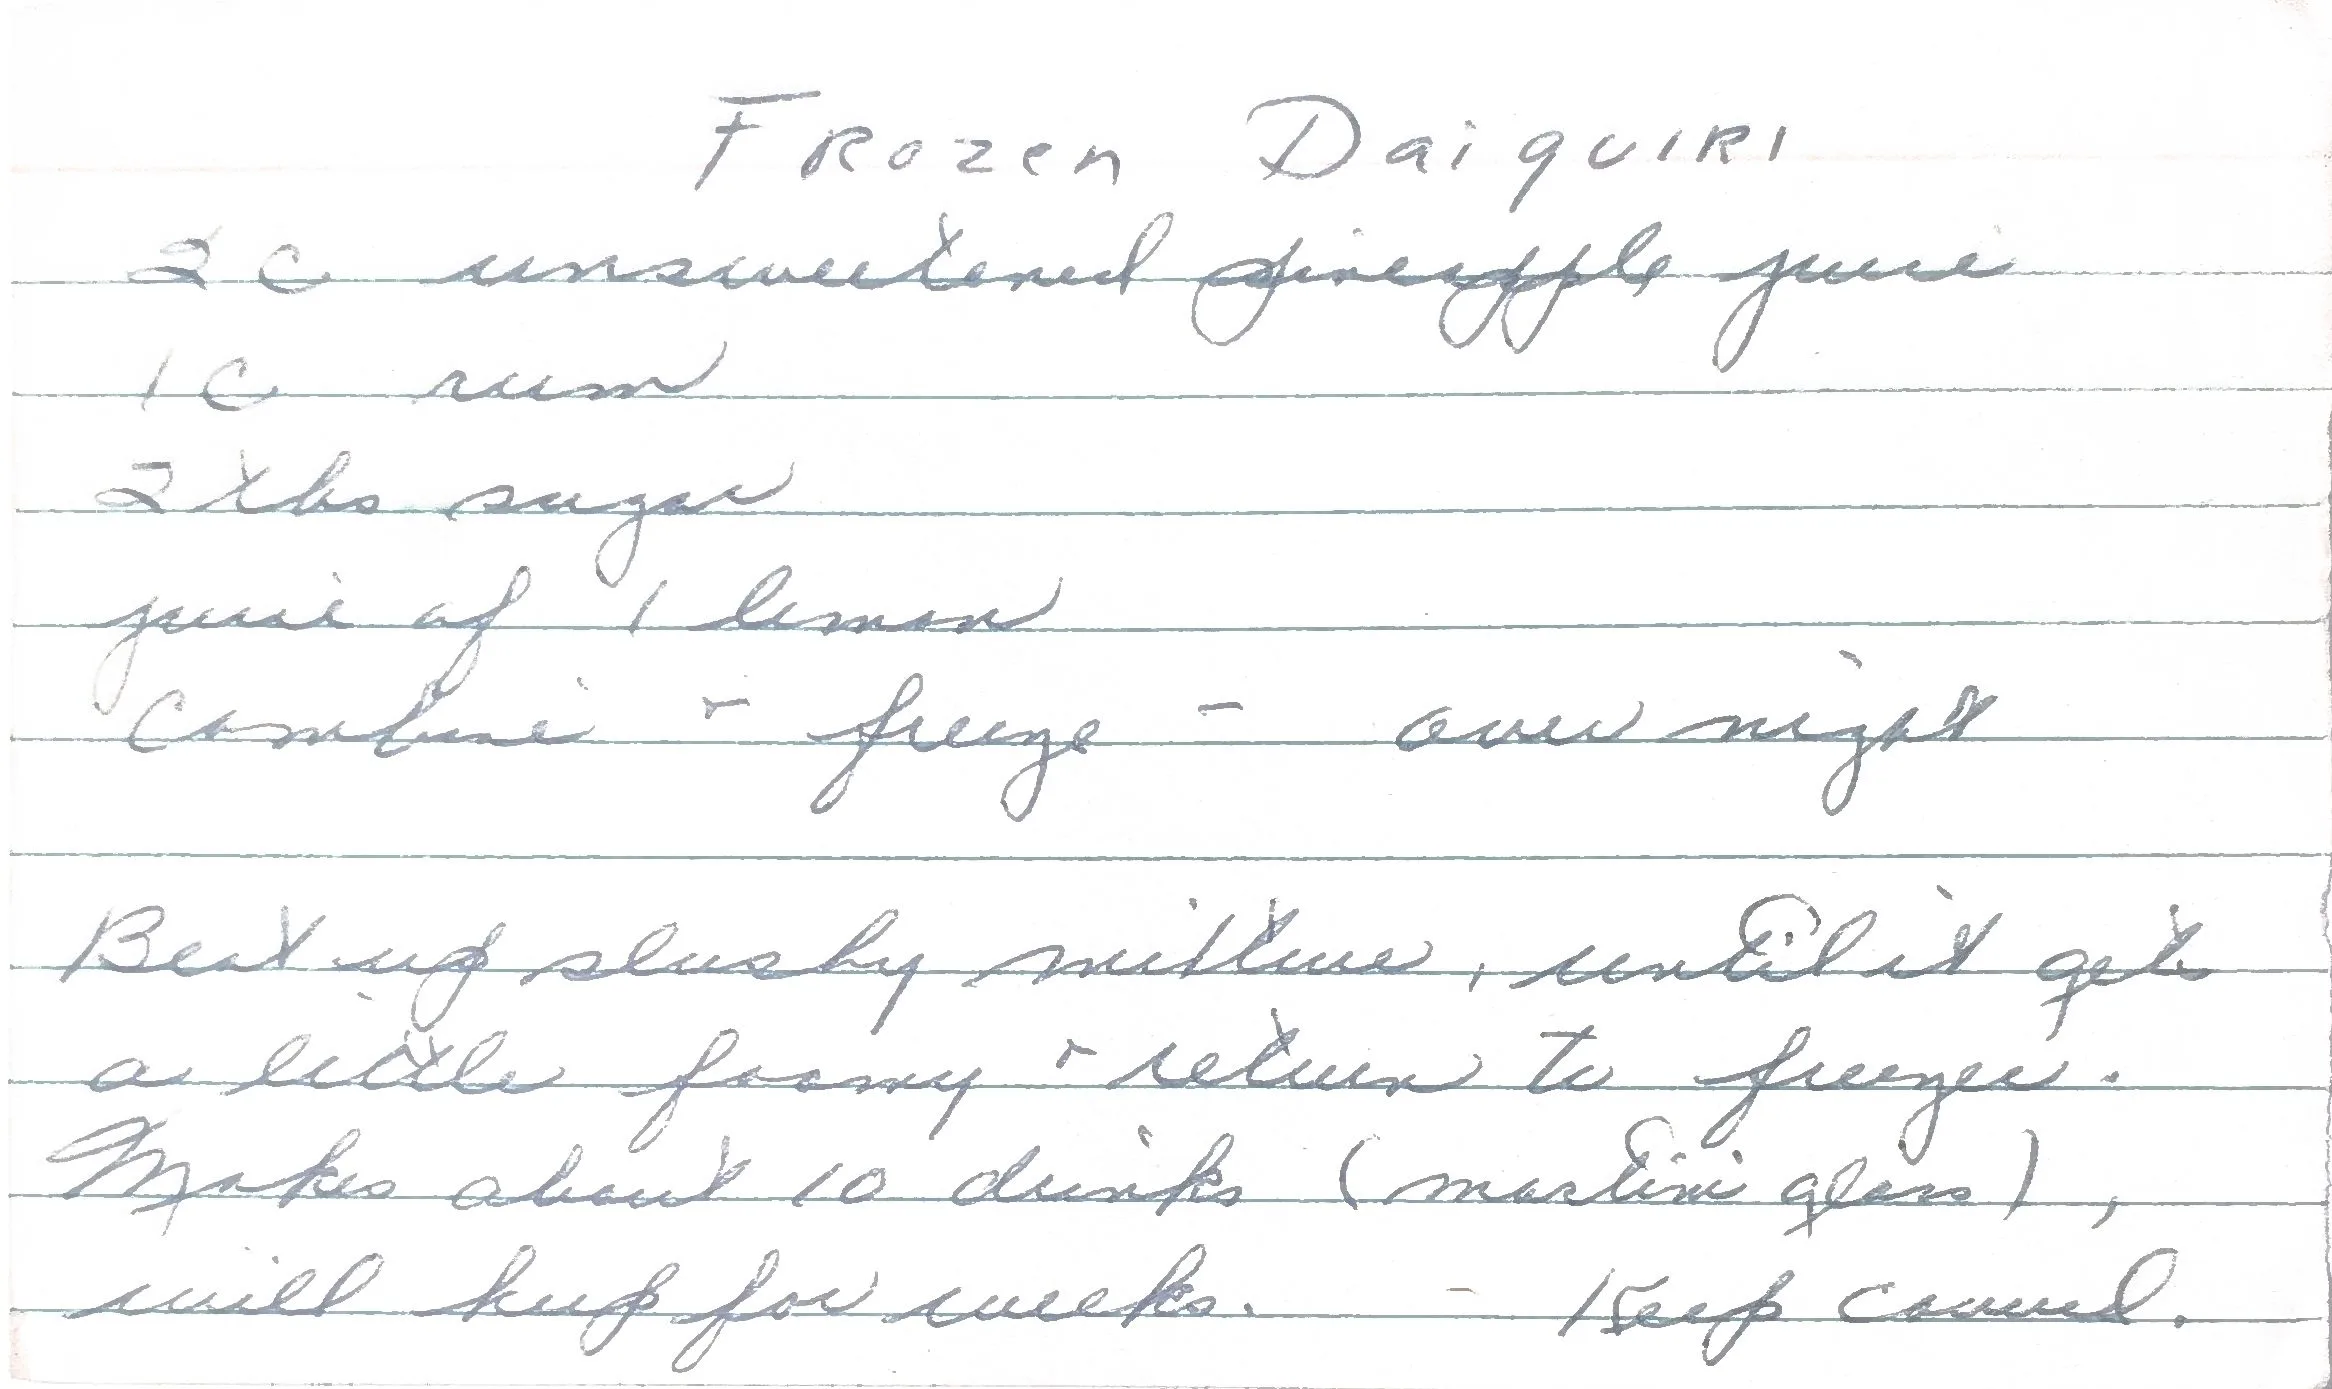 Frozen Daiquiri
2 C unsweetened pineapple juice
1 C rum
2 tbs sugar
juice of 1 lemon
Combine - freeze - over night
Beat up slushy mixture, until it gets
a little foamy & return to freezer.
Makes about 10 drinks (martini glass),
will keep for weeks. - Keep covered.